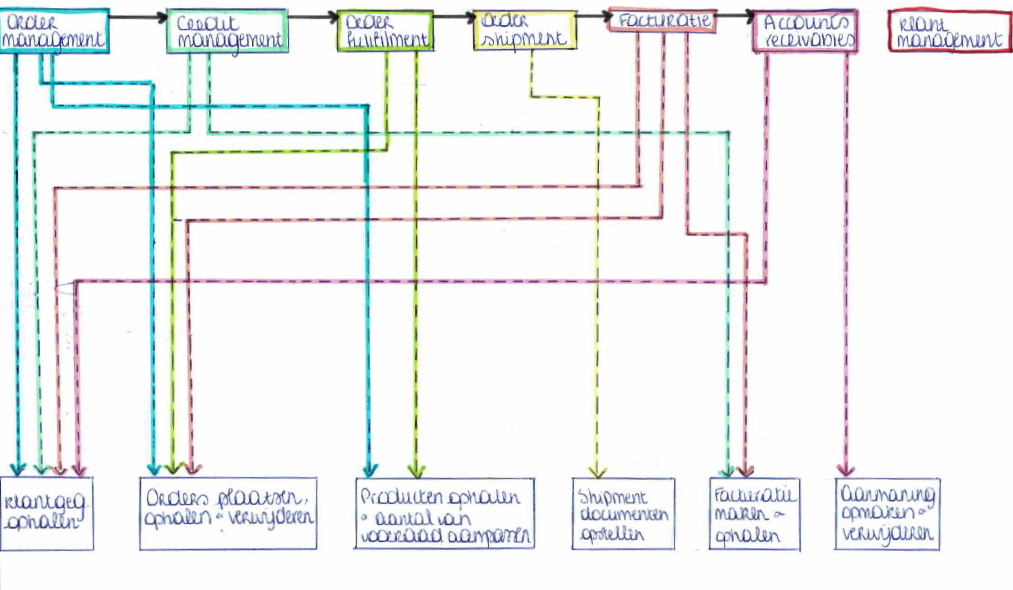 Order
management
Credit
management
Order
fulfilment
Order
shipment
Facturatie
Accounts
receivables
klant
management
klantgeg.
ophalen
Orders plaatsen,
ophalen & verwijderen
Producten ophalen
& aantal van
voorraad aanpassen
Shipment
documenten
opstellen
Facturatie
maken &
ophalen
Aanmaning
opmaken &
verwijderen